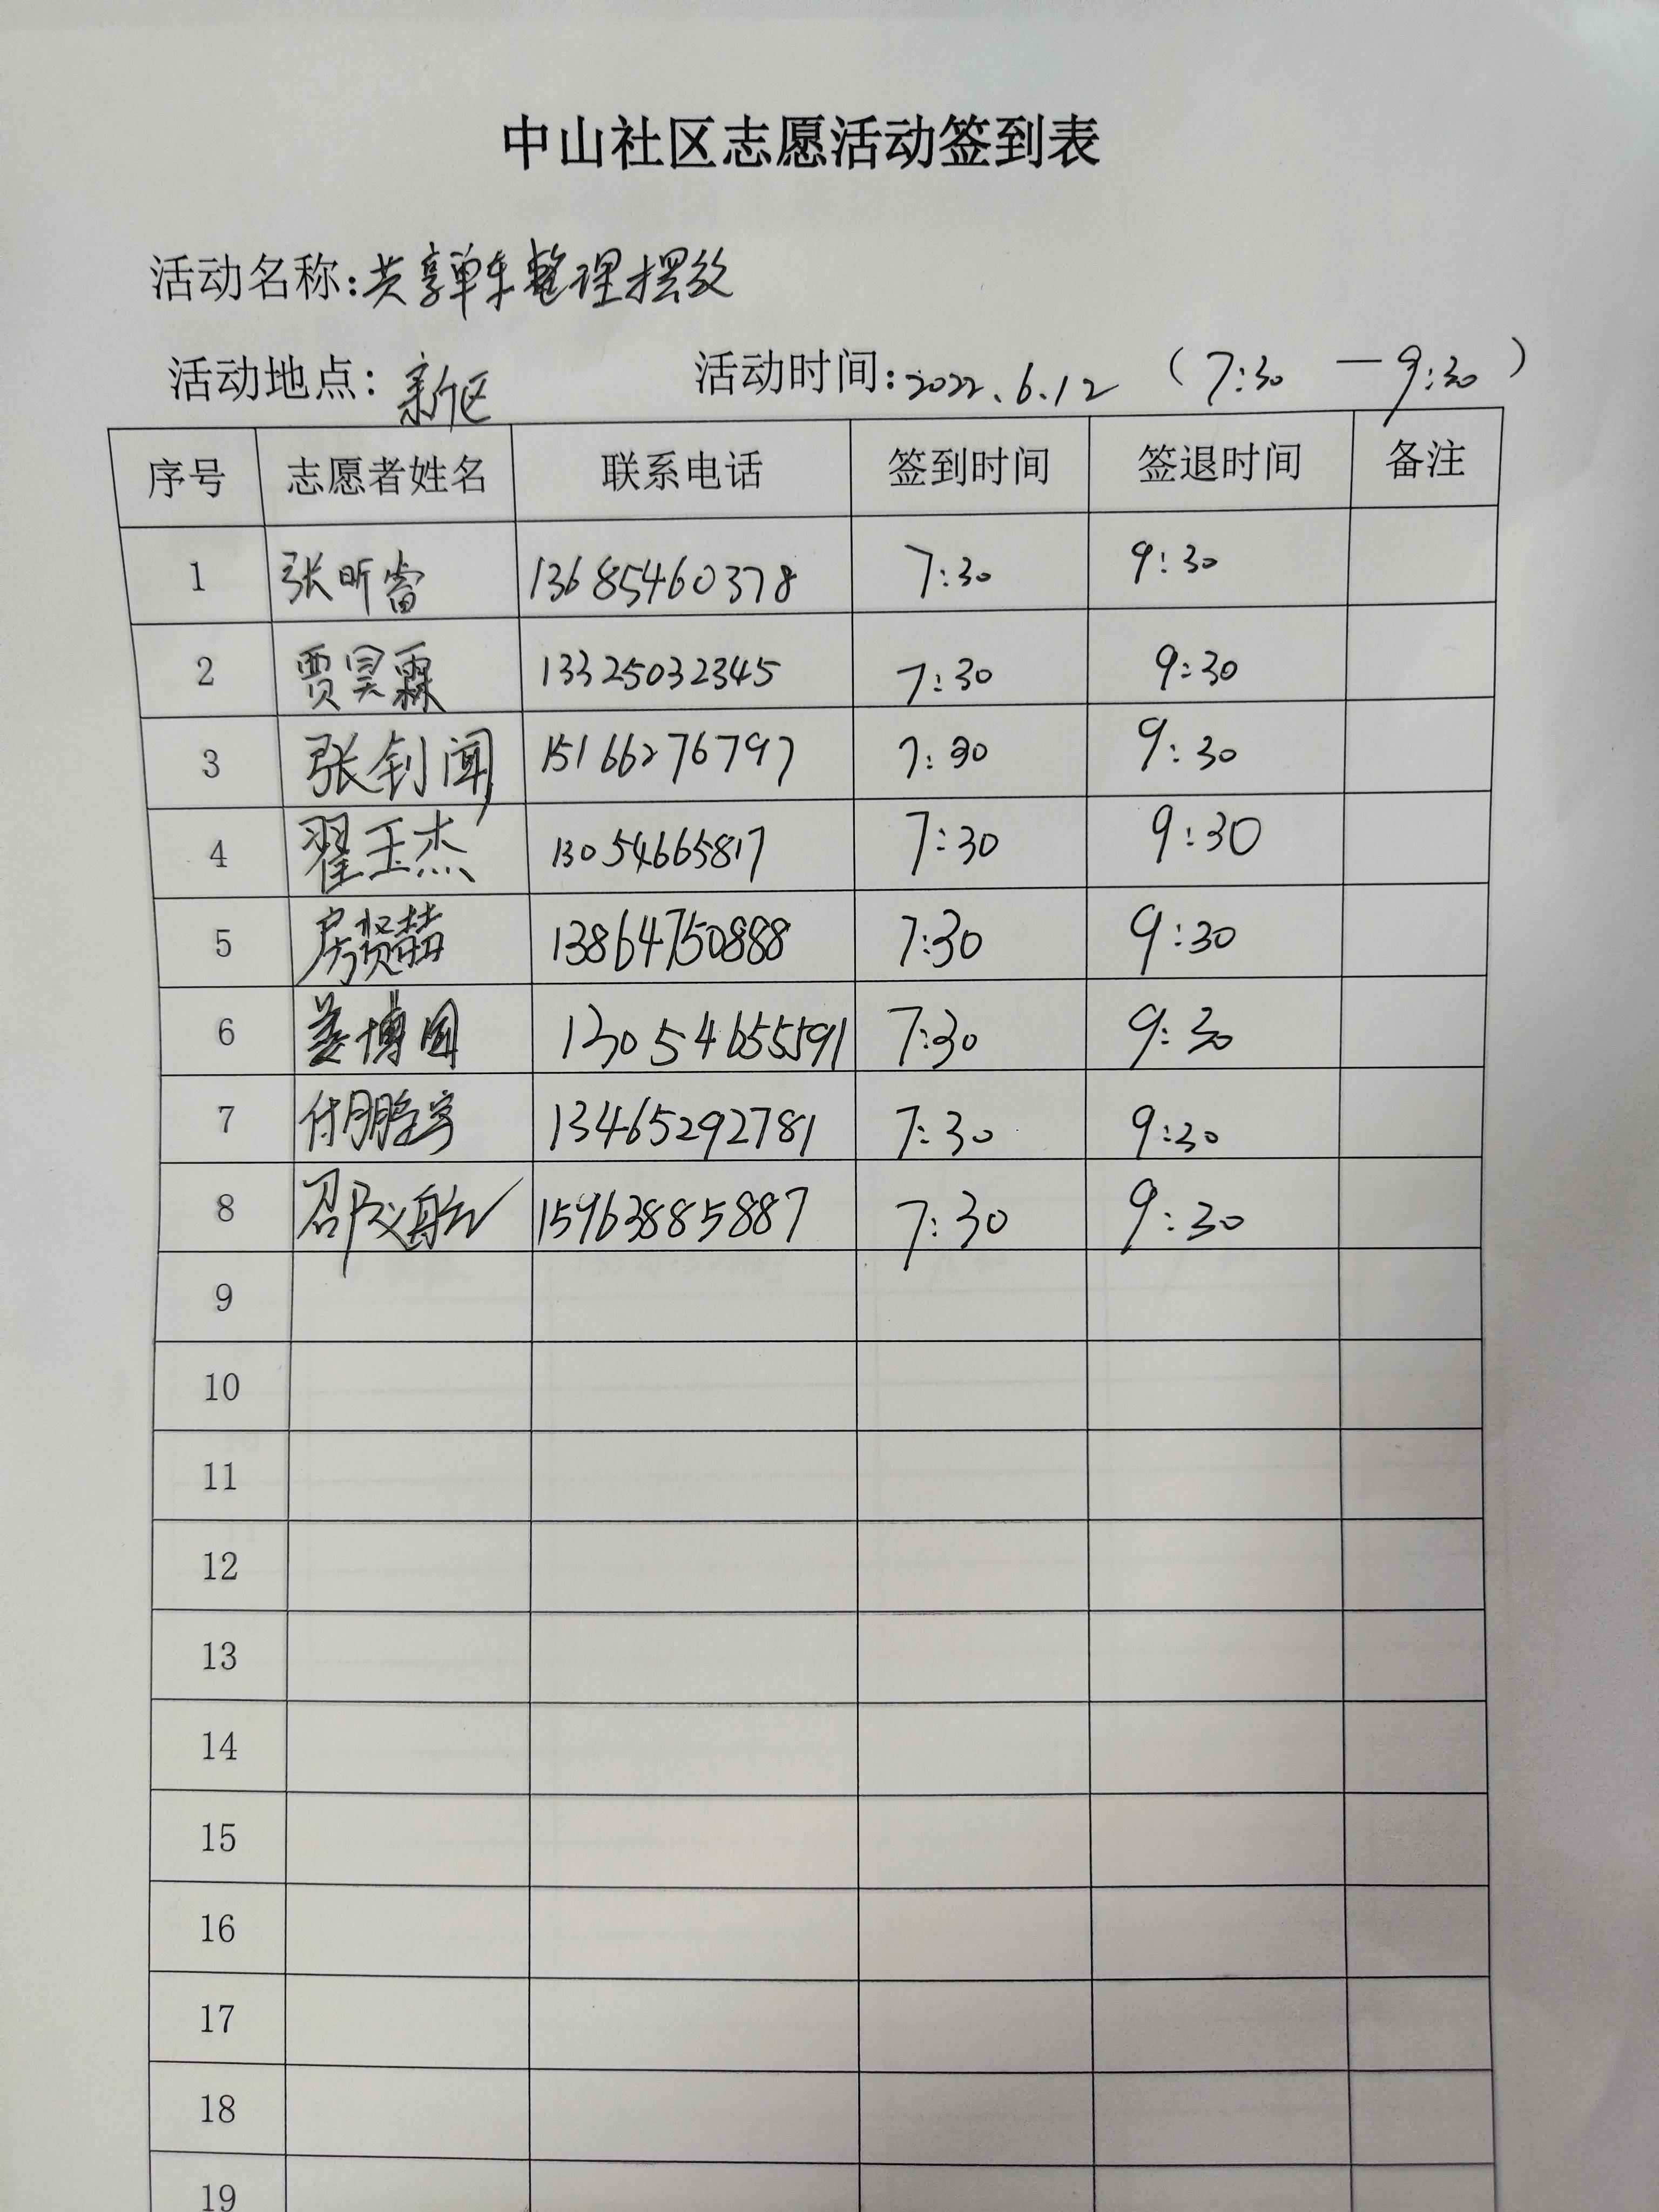 中山社区志愿活动签到表
活动名称:共享单车整理摆放
活动地点:新区 活动时间:2022.6.12 (7:30 —9:30)
序号 志愿者姓名 联系电话 签到时间 签退时间 备注
1 张昕睿 13685460378 7:30 9:30
2 贾昊霖 13325032345 7:30 9:30
3 张钊闻 15166276797 7:30 9:30
4 翟玉杰 13054665817 7:30 9:30
5 房贤喆 13864750888 7:30 9:30
6 姜博闻 13054655591 7:30 9:30
7 付鹏宇 13465292781 7:30 9:30
8 邵文航 15963885887 7:30 9:30
9
10
11
12
13
14
15
16
17
18
19